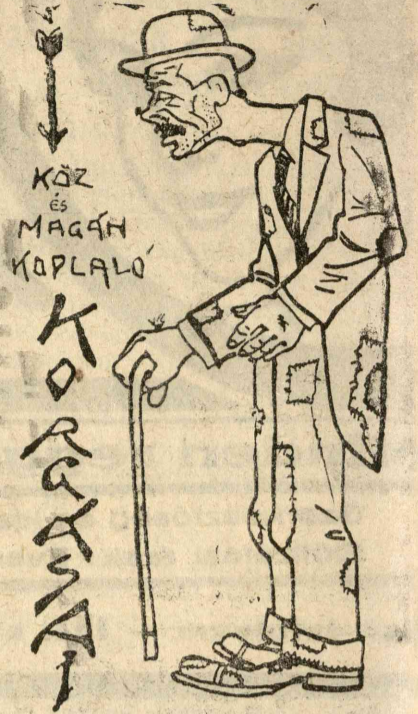 KÖZ
ÉS
MAGÁN
KOPLALÓ
KORGÁSAI